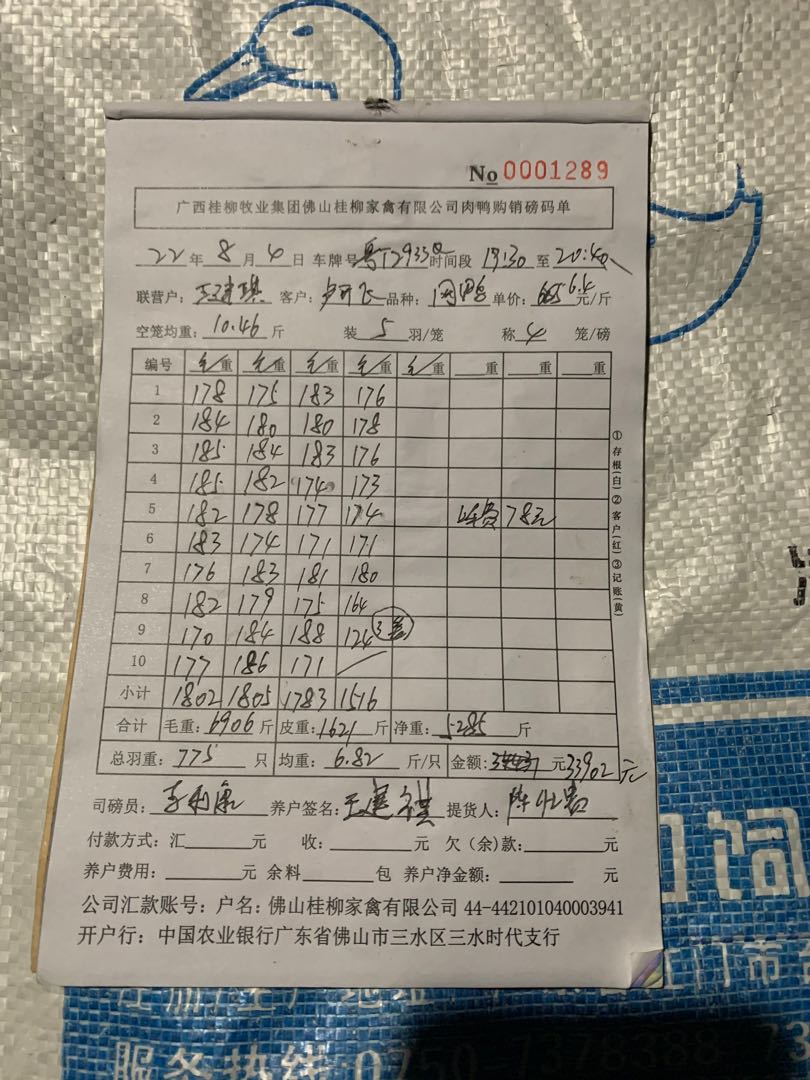 No 0001289
广西桂柳牧业集团佛山桂柳家禽有限公司肉鸭购销磅码单
22 年 8 月 4 日 车牌号 时间段 19:30 至 20:40
联营户: 客户: 卢开飞 品种: 单价: 6.4 元/斤
空笼均重: 10.46 斤 装 5 羽/笼 称 4 笼/磅
编号 毛/重 毛/重 毛/重 毛/重 毛/重 重 重 重
1 178 175 183 176
2 184 180 180 178
3 185 184 183 176
4 185 182 174 173
5 182 178 177 174 78元
6 183 174 171 171
7 176 183 181 180
8 182 179 175 164
9 170 184 188 124 3笼
10 177 186 171
小计 1802 1805 1783 1516
合计 毛重: 6906 斤 皮重: 1621 斤 净重: 5285 斤
总羽重: 775 只 均重: 6.82 斤/只 金额: 元 33902元
司磅员: 李利康 养户签名: 提货人:
付款方式: 汇 元 收: 元 欠(余)款: 元
养户费用: 元 余料 包 养户净金额: 元
公司汇款账号: 户名: 佛山桂柳家禽有限公司 44-442101040003941
开户行: 中国农业银行广东省佛山市三水区三水时代支行
①存根(白)②客户(红)③记账(黄)
饲
江门市
服务热线:0750-7378388